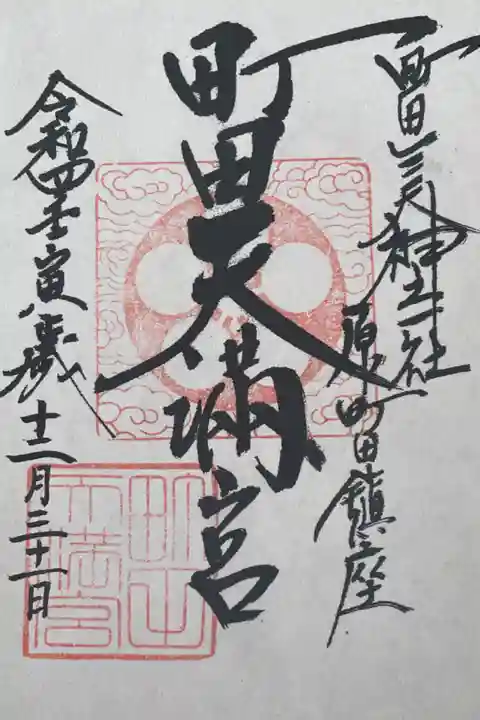 町田三天神之一社
原町田鎮座
町田天満宮
令和四壬寅歳
十二月三十一日
町田天満宮